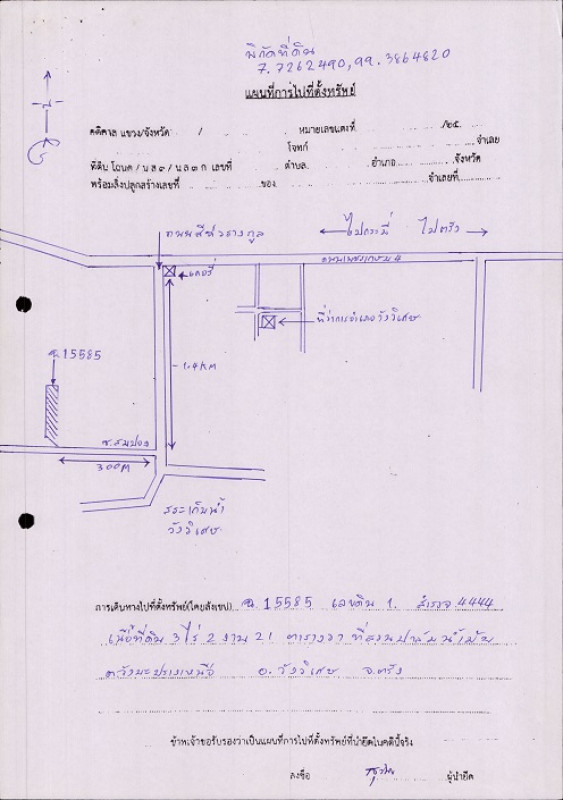 พิกัดที่ดิน
7.7262490, 99.3864820
แผนที่การไปที่ตั้งทรัพย์
คดีศาล แขวง/จังหวัด / หมายเลขแดงที่ /๒๕
โจทก์ จำเลย
ที่ดิน โฉนด / น.ส.๓ / น.ส.๓ ก เลขที่ ตำบล อำเภอ จังหวัด
พร้อมสิ่งปลูกสร้างเลขที่ ของ จำเลยที่
ไปกระบี่ ไปตรัง
ถนนเพชรเกษม 4
ที่ว่าการอำเภอวังวิเศษ
ฉ.15585
1.4 KM
ซ.สมปอง
300M
สระเก็บน้ำ
วังวิเศษ
การเดินทางไปที่ตั้งทรัพย์(โดยสังเขป) ฉ.15585 เลขดิน 1. สำรวจ 4444
เนื้อที่ดิน 3 ไร่ 2 งาน 21 ตารางวา ที่สวนปาล์มน้ำมัน
ต.วังมะปรางเหนือ อ.วังวิเศษ จ.ตรัง
ข้าพเจ้าขอรับรองว่าเป็นแผนที่การไปที่ตั้งทรัพย์ที่นำยึดในคดีนี้จริง
ลงชื่อ ผู้นำยึด